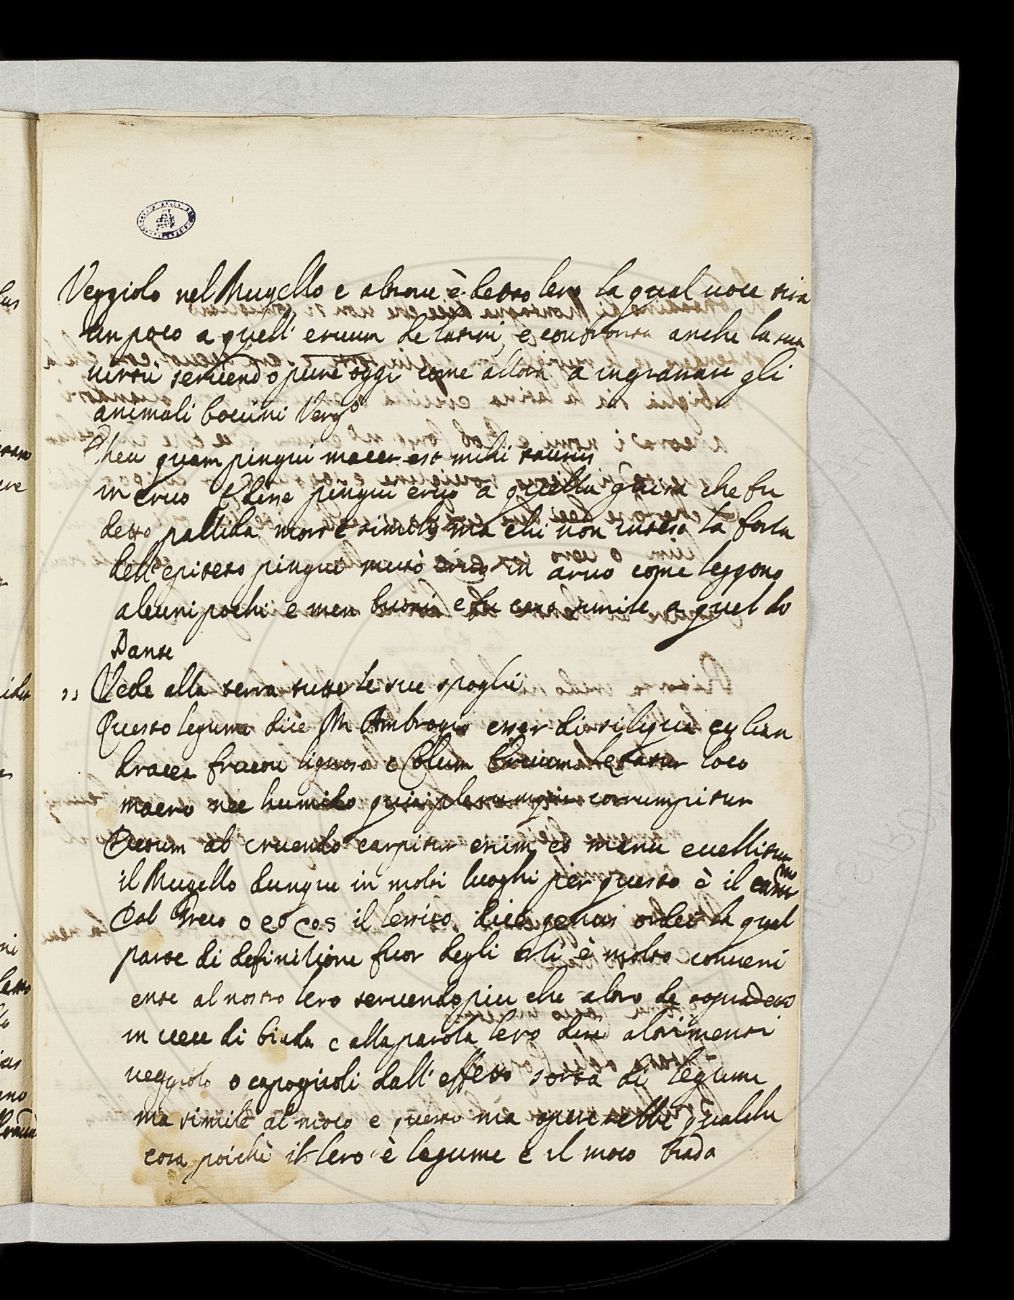 Veggiolo nel Mugello e altrove è detto lero la qual voce tira
un poco a quell' ervum de latini, e confronta anche la sua
virtù servendo pure oggi come allora a ingrassare gli
animali bovini Verg.º
Eheu quam pingui macer est mihi taurus
in ervo e disse pingui ervo a quella guisa che fu
detto pallida mors e simili ma chi non intese la forza
dell'epiteto pingui mutò ervo in arvo come leggono
alcuni pochi e men buoni e fu cosa simile a quel di
Dante
,, Vede alla terra tutte le sue spoglie
Questo legume dice M. Ambrogio esser di siliqua cylin
dracea frutice lignoso e Colum
macro nec humido quia plerumque corrumpitur
ervum ab eruendo carpitur enim et manu evellitur
il Mugello dunque in molti luoghi per questo è il
Dal Greco o εροcος il lessico, dice genus
parte di definitione fuor degli orli è molto conveni
ente al nostro lero servendo piu che altro
in vece di biada e alla parola lero dice altrimenti
veggiolo o capogiroli dall'effetto sorta di legume
ma simile al moco e questo ma qualche
cosa poichè il lero è legume e il moco biada